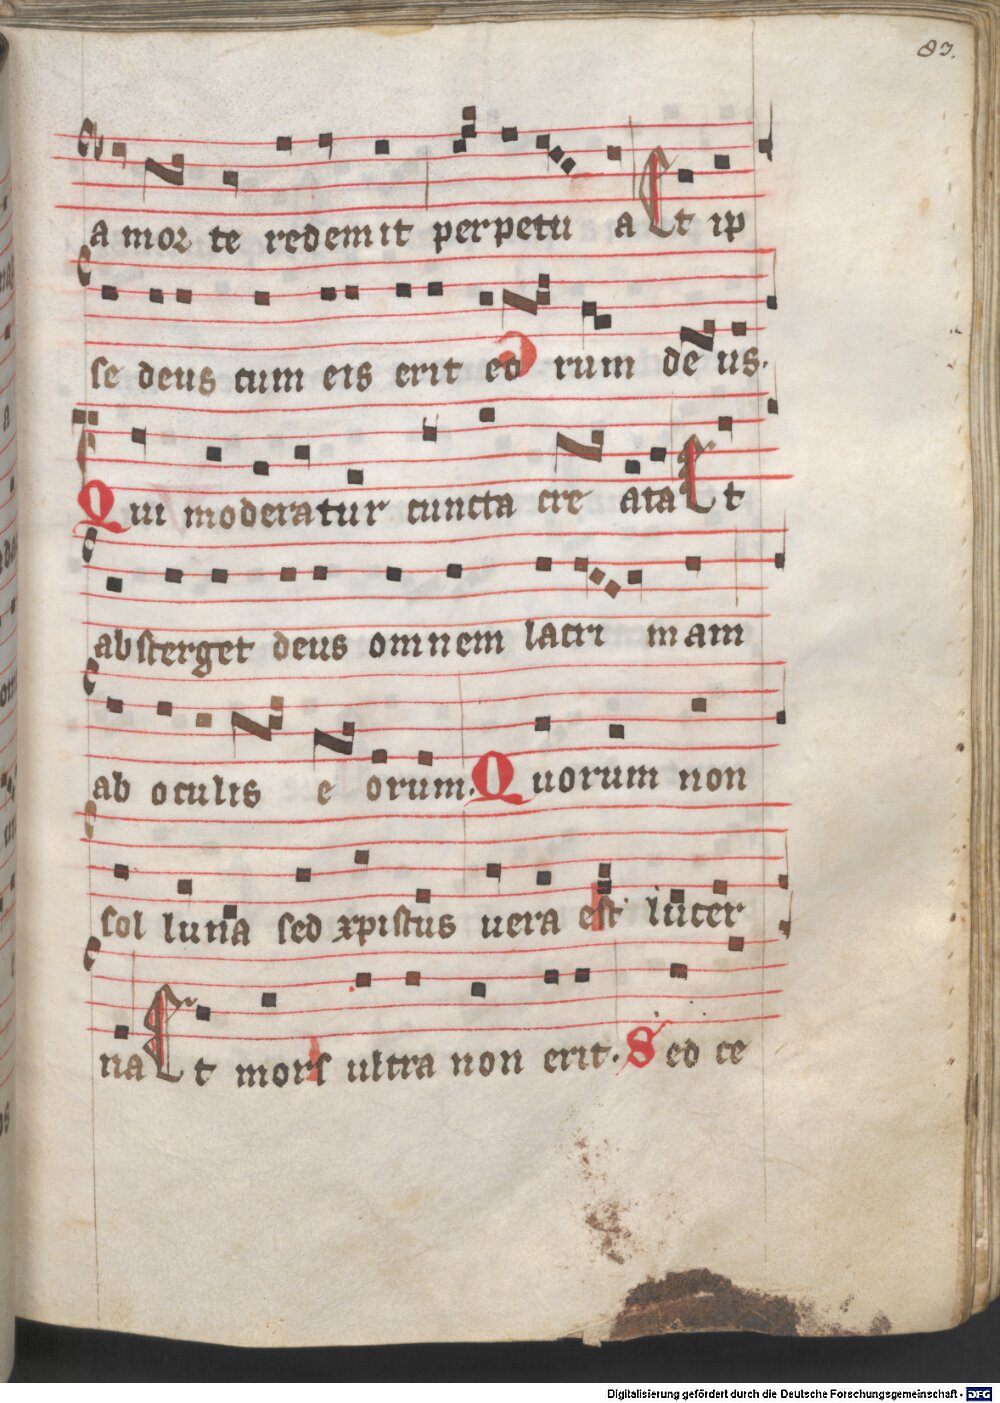 83.
a mor te redemit perpetu a Et ip
se deus cum eis erit eo rum de us.
Qui moderatur cuncta cre ata Et
absterget deus omnem lacri mam
ab oculis e orum. Quorum non
sol luna sed xpistus uera est lucer
na Et mors ultra non erit. Sed ce
Digitalisierung gefördert durch die Deutsche Forschungsgemeinschaft - DFG